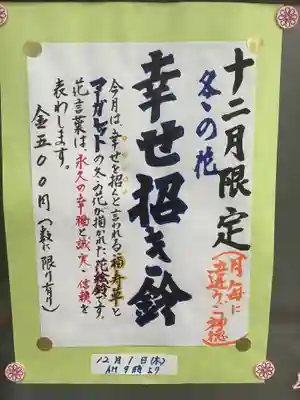 十二月限定
冬の花
(月毎に
違うご神徳)
幸せ招き鈴
今月は、幸せを招くと言われる福寿草と
マーガレットの冬の花が描かれた花絵鈴です。
花言葉は、永久の幸福と誠実・信頼を
表わします。
金五〇〇円(数に限り有り)
12月1日(木)
AM9時より